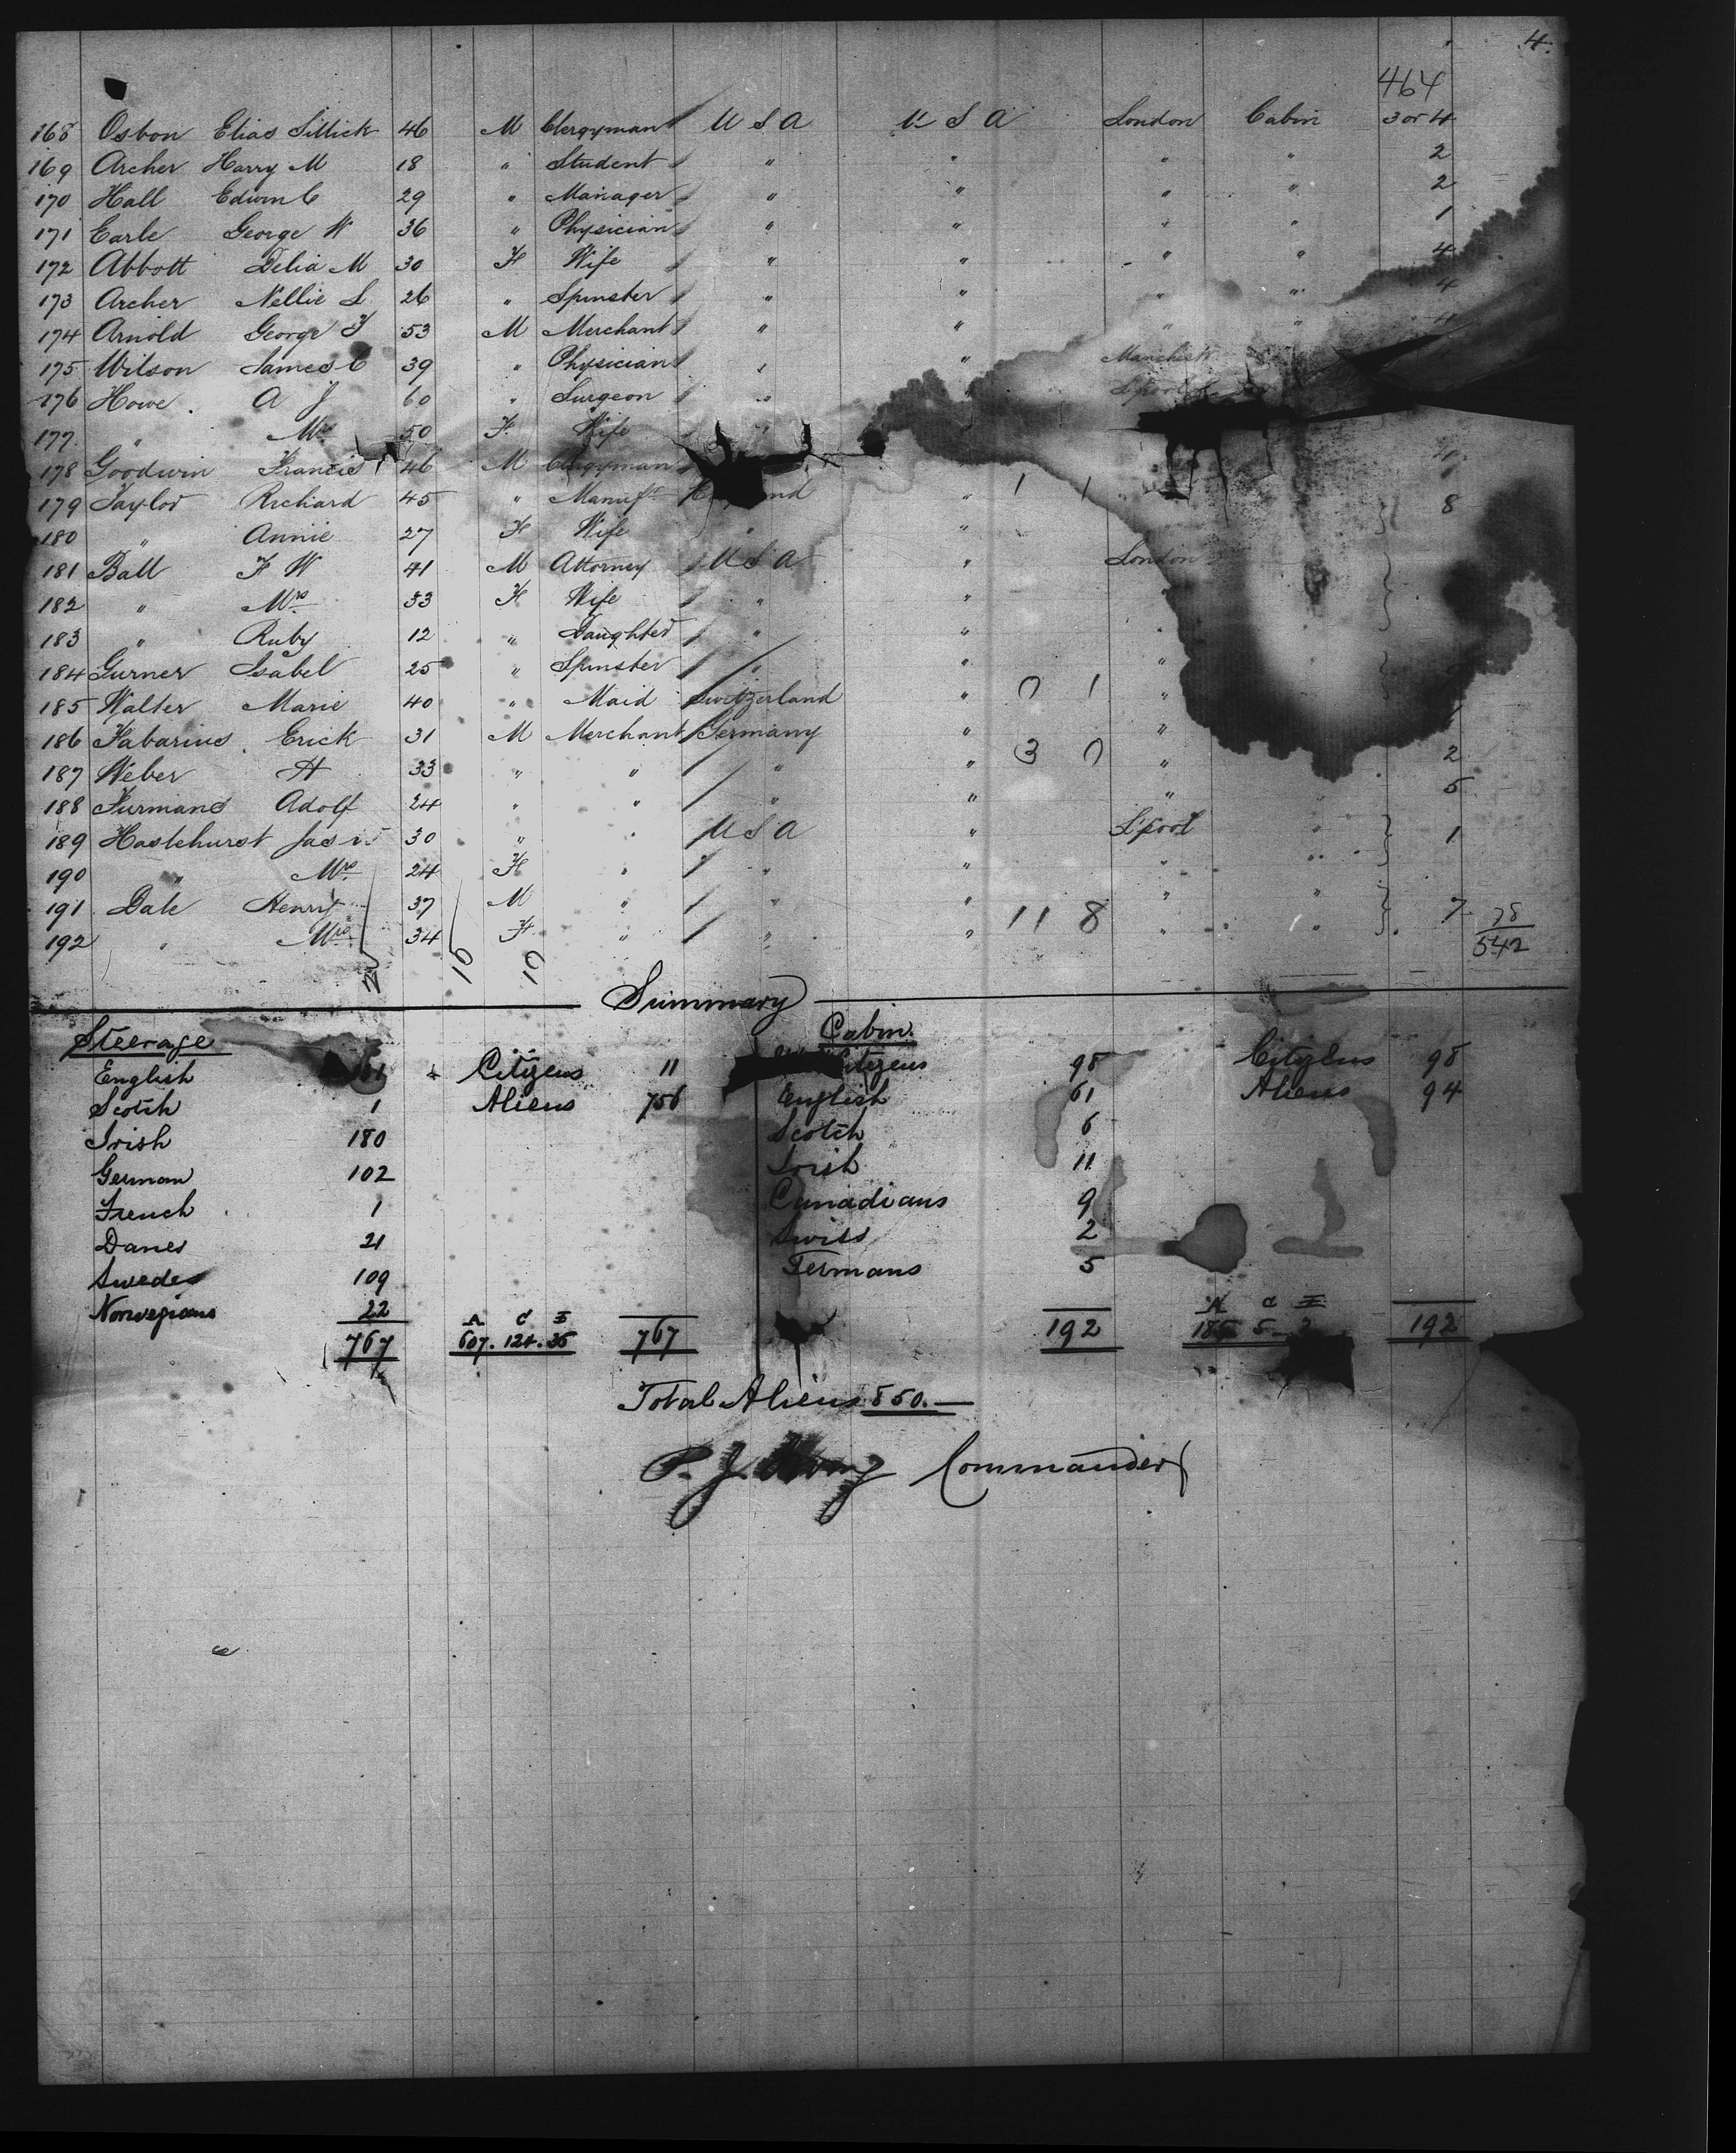 4.
464
168 Osbon Elias Sillick 46 M Clergyman U S A U S A London Cabin 3 or 4
169 Archer Harry M 18 " Student " " " " 2
170 Hall Edwin C 29 " Manager " " " " 2
171 Earle George W 36 " Physician " " " " 1
172 Abbott Delia M 30 F Wife " " " " 4
173 Archer Nellie L 26 " Spinster " " " " 4
174 Arnold George F 53 M Merchant " " " " 4
175 Wilson James C 39 " Physician " "
176 Howe A J 60 " Surgeon " "
177 " Mrs 50 F Wife "
178 Goodwin Francis 46 M Clergyman
179 Taylor Richard 45 " " 1 1 " 8
180 " Annie 27 F Wife " "
181 Ball F W 41 M Attorney U S A " London
182 " Mrs 33 F Wife " "
183 " Ruby 12 " Daughter " " "
184 Gurner Isabel 25 " Spinster " " "
185 Walter Marie 40 " Maid Switzerland " 0 1 "
186 Fabarius Erick 31 M Merchant Germany " "
187 Weber A 33 " " " " 3 0 " 2
188 Furmans Adolf 24 " " " " " " 5
189 Hastehurst Jas 30 " " U S A " L'pool " 1
190 " Mrs 24 F " " " " "
191 Dale Henry 37 M " " " " "
192 " Mrs 34 F " " " 11 8 " " 7 78
542
Summary
Steerage Cabin.
English Citizens 11 Citizens 98 Citizens 98
Scotch 1 Aliens 756 English 61 Aliens 94
Irish 180 Scotch 6
German 102 Irish 11
French 1 Canadians 9
Danes 21 Swiss 2
Swedes 109 Germans 5
Norwegians 22 A C I A C I
767 607. 124. 36 767 192 192
Total Aliens 850.—
P. J. Commander